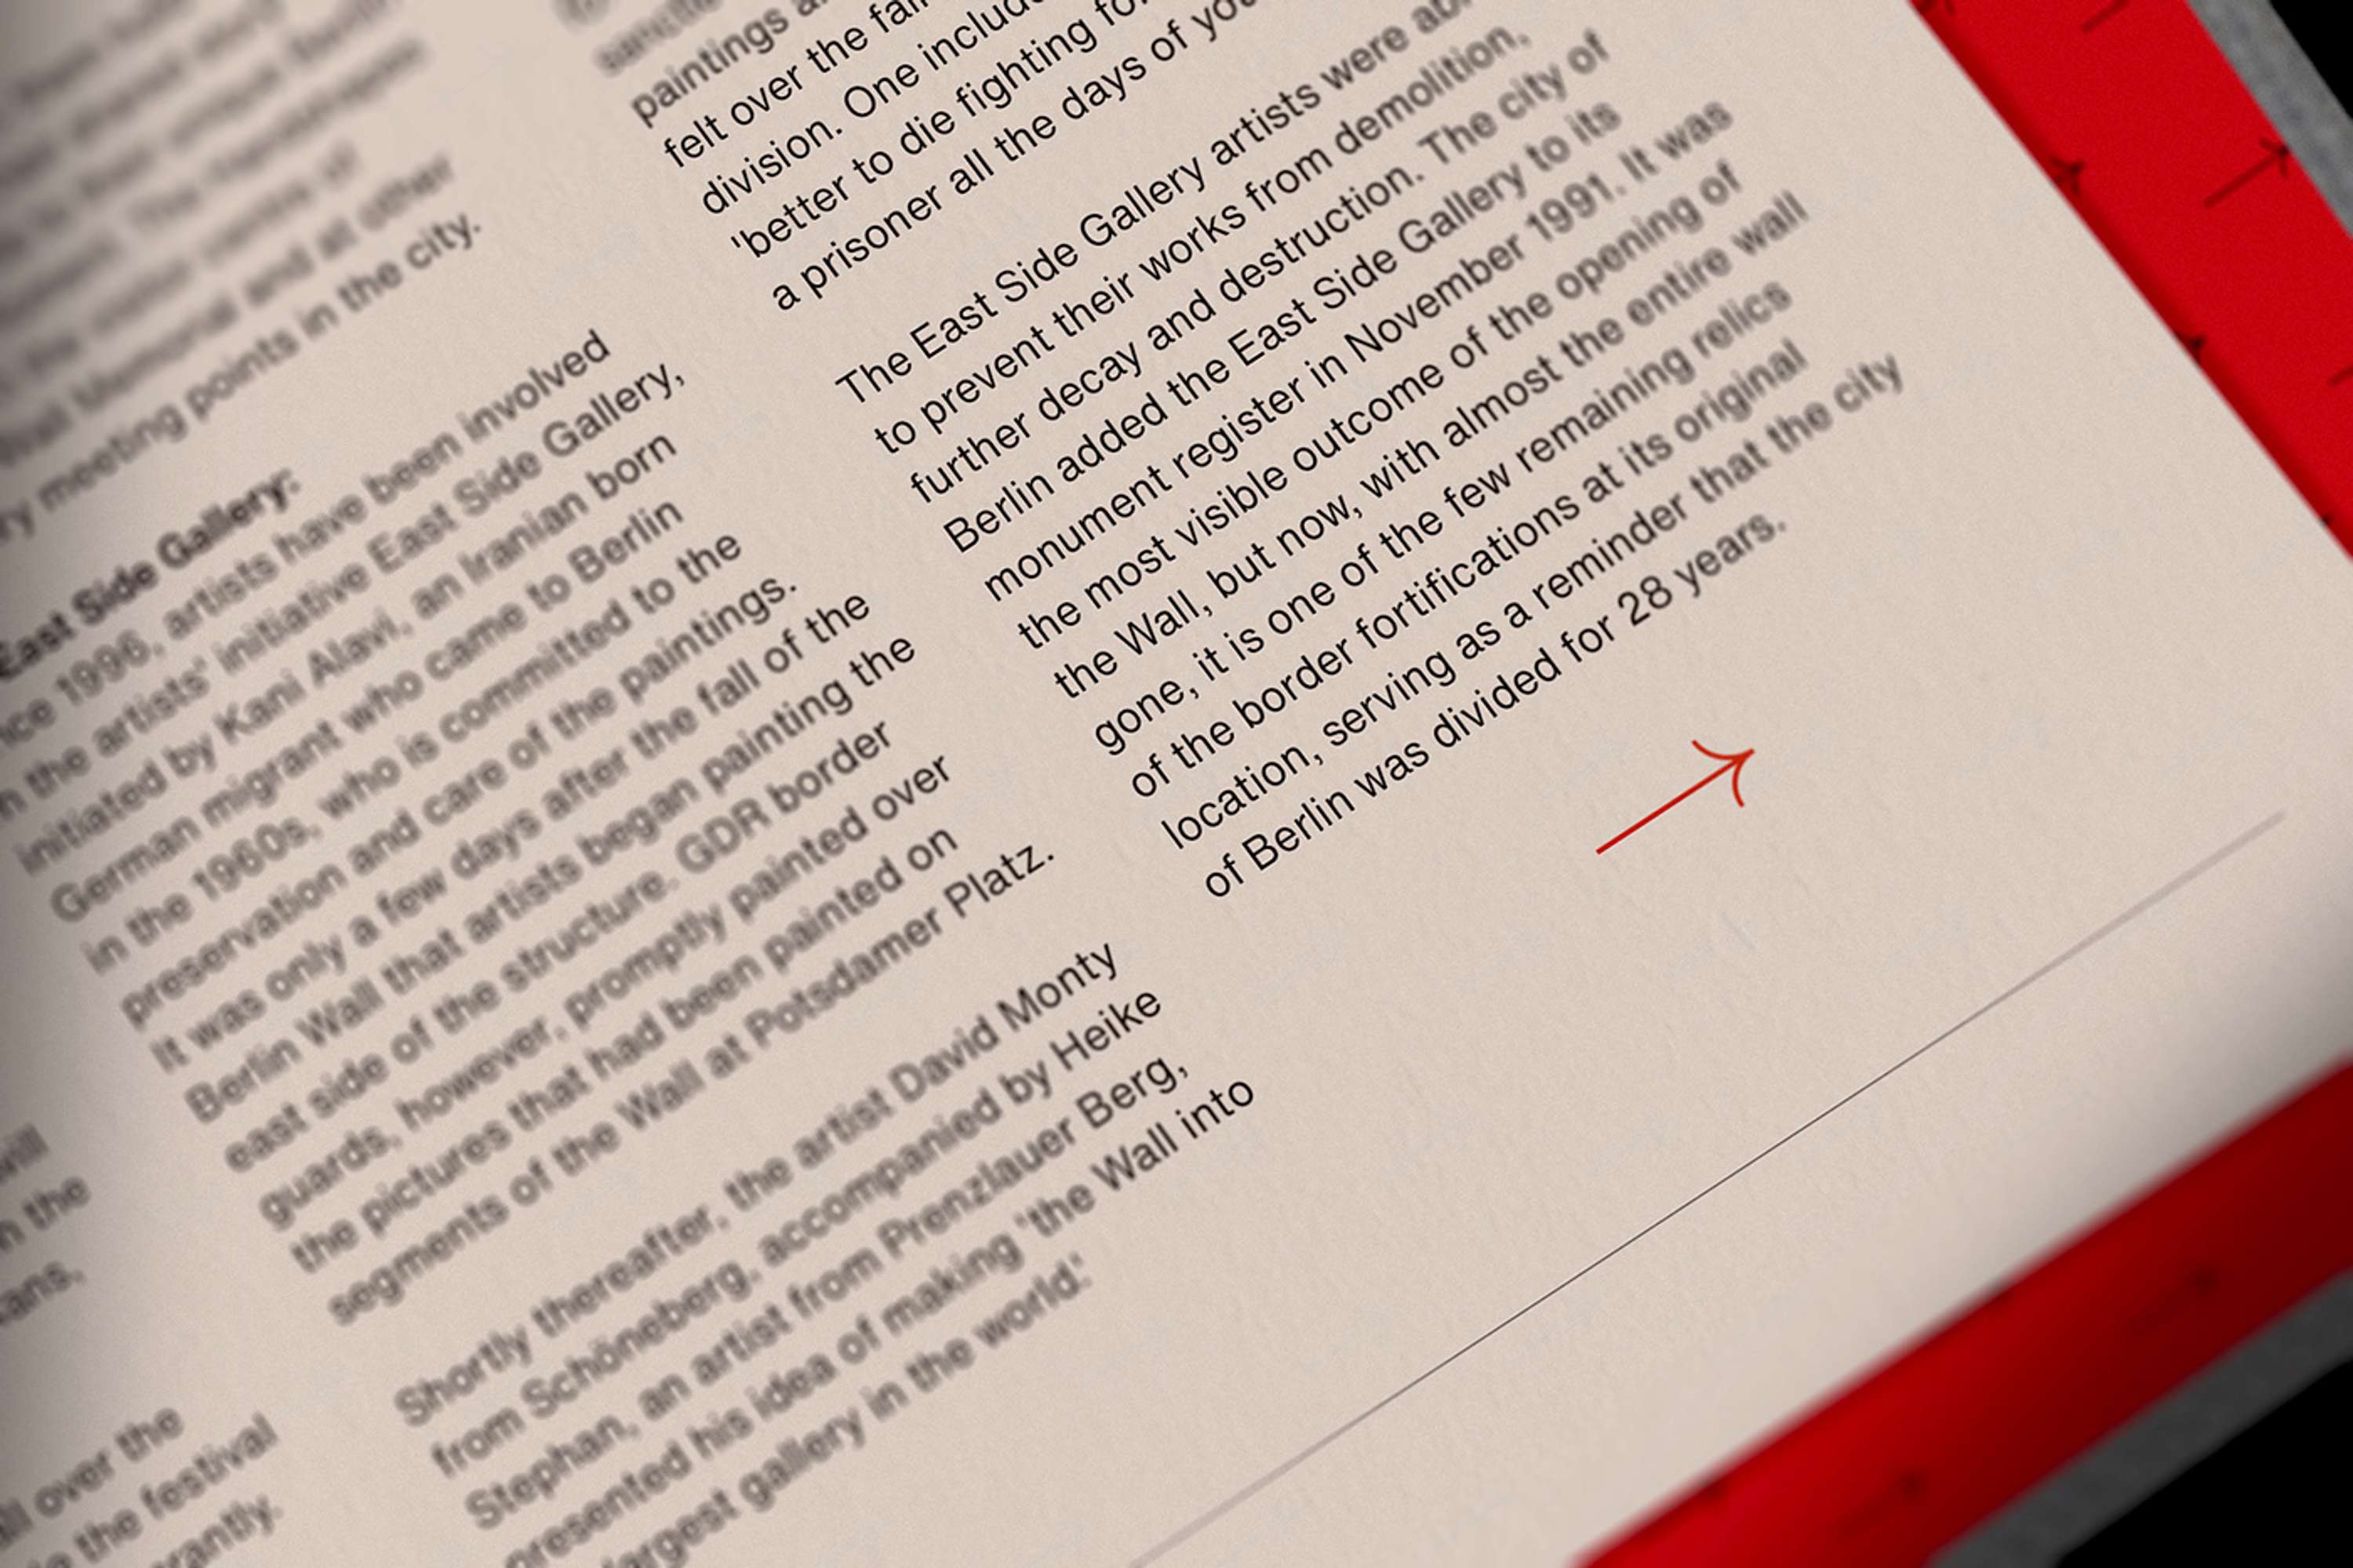 meeting points in the city.
East Side Gallery:
1996, artists have been involved
the artists' initiative East Side Gallery,
initiated by Kani Alavi, an Iranian born
German migrant who came to Berlin
in the 1960s, who is committed to the
preservation and care of the paintings.
It was only a few days after the fall of the
Berlin Wall that artists began painting the
east side of the structure. GDR border
guards, however, promptly painted over
the pictures that had been painted on
segments of the Wall at Potsdamer Platz.
Shortly thereafter, the artist David Monty
from Schöneberg, accompanied by Heike
Stephan, an artist from Prenzlauer Berg,
presented his idea of making 'the Wall into
largest gallery in the world.'
over the
the festival
paintings
felt over the
division. One
'better to die fighting
a prisoner all the days of
The East Side Gallery artists were
to prevent their works from demolition,
further decay and destruction. The city of
Berlin added the East Side Gallery to its
monument register in November 1991. It was
the most visible outcome of the opening of
the Wall, but now, with almost the entire wall
gone, it is one of the few remaining relics
of the border fortifications at its original
location, serving as a reminder that the city
of Berlin was divided for 28 years.